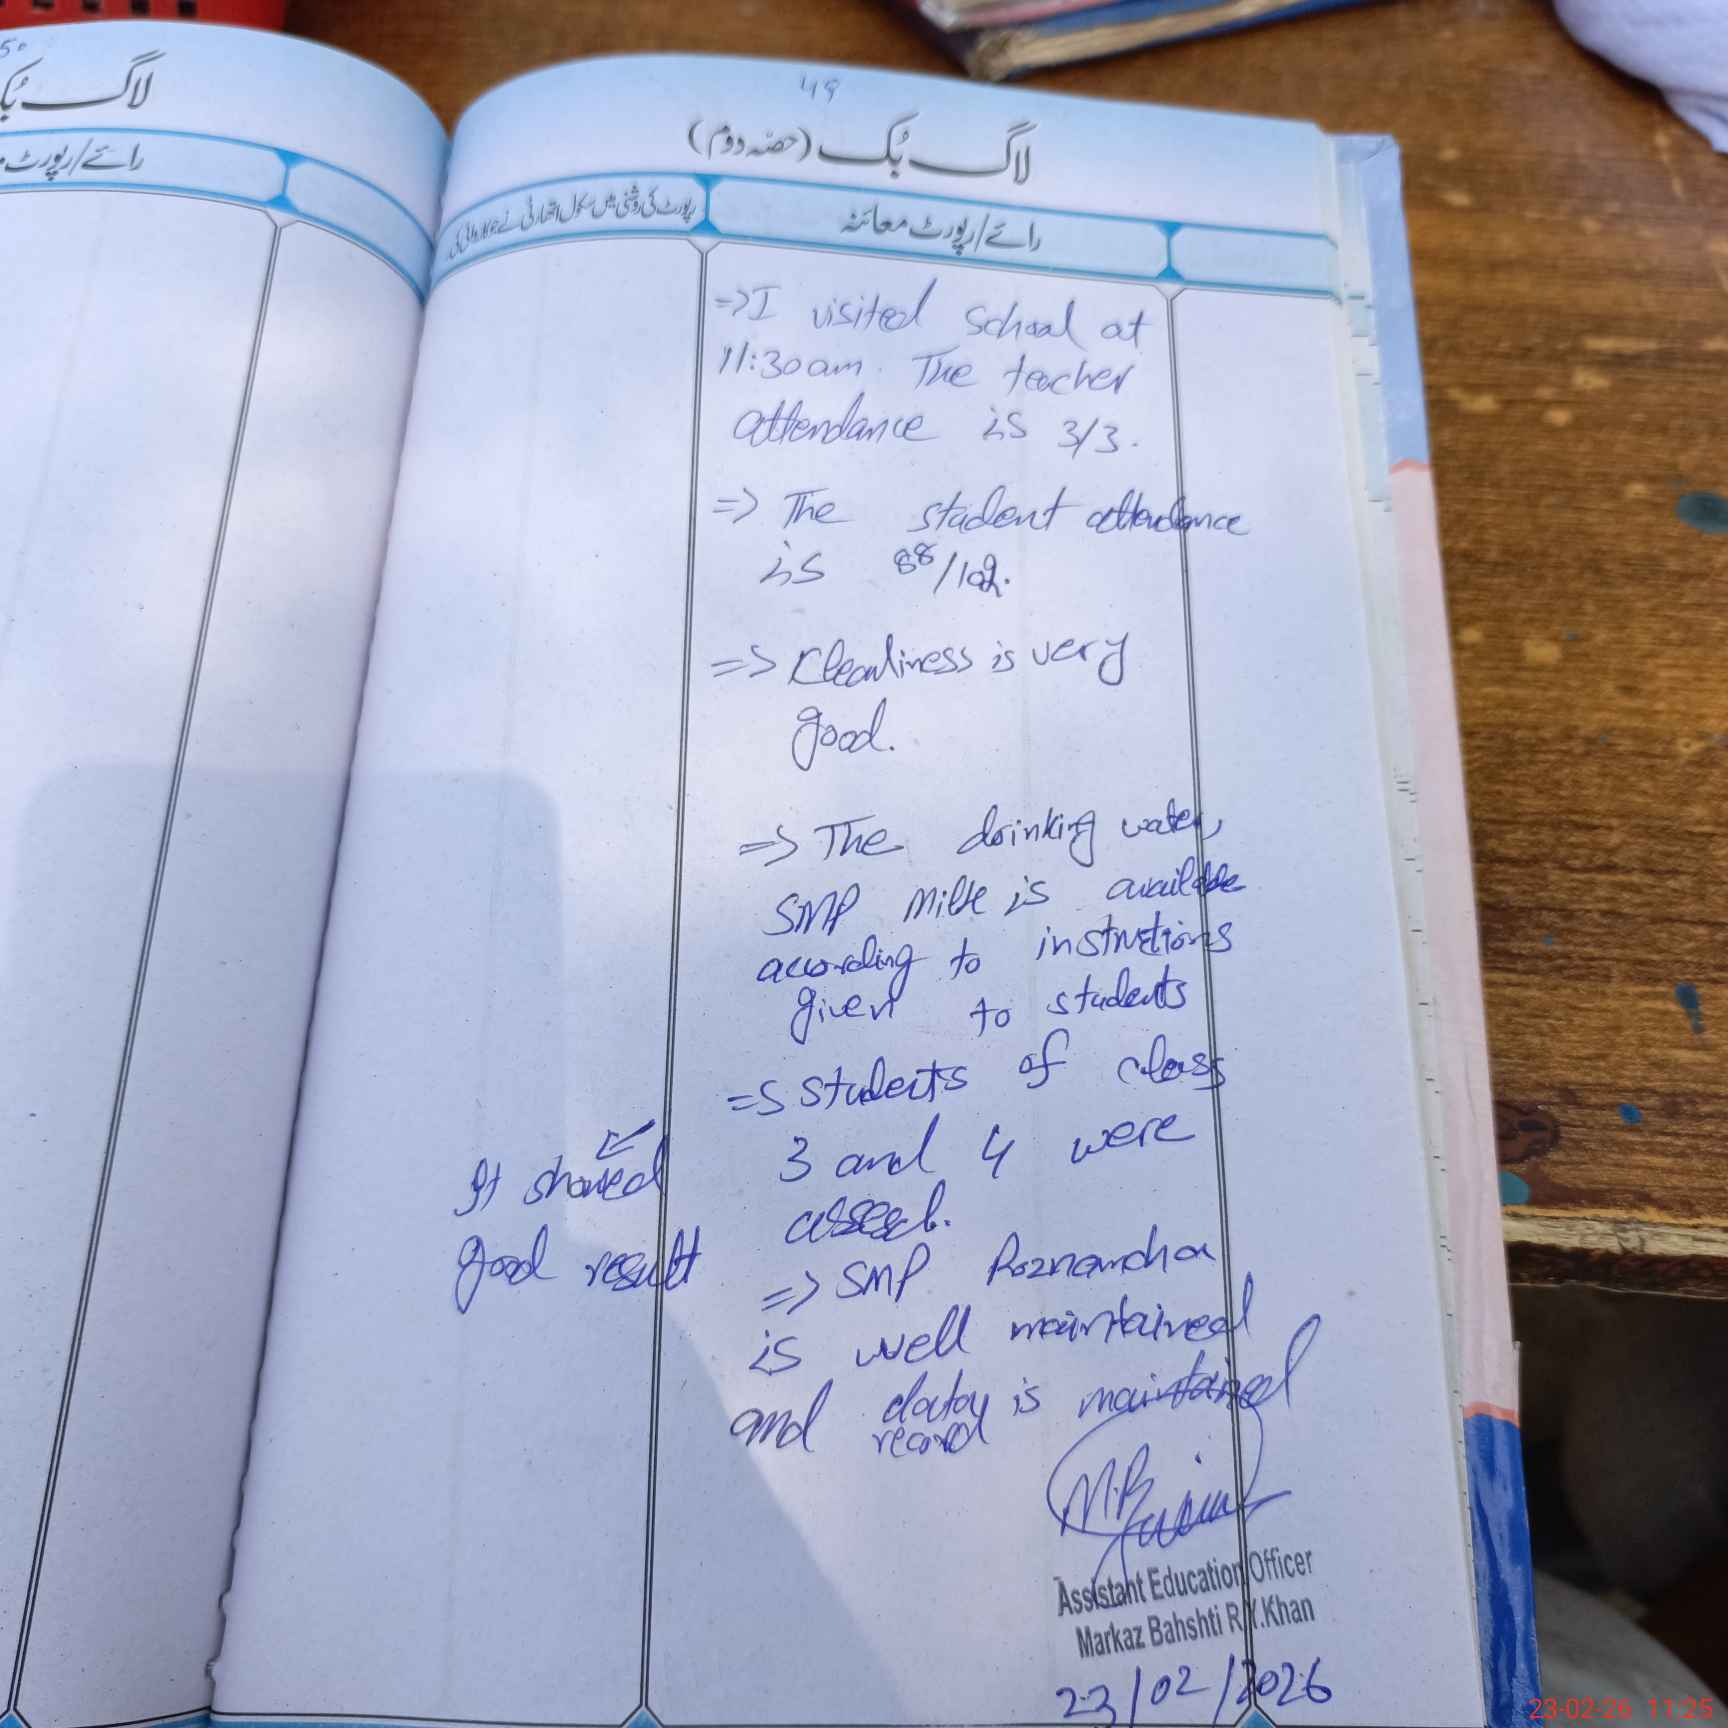 50
لاگ بُک
رائے/رپورٹ
49
لاگ بُک (حصّہ دوم)
رائے/رپورٹ معائنہ
رپورٹ کی روشنی میں سکول اتھارٹی نے جو کاروائی کی
=> I visited school at
11:30 am. The teacher
attendance is 3/3.
=> The student attendance
is 88/102.
=> Cleanliness is very
good.
=> The drinking water,
SMP Milk is available
according to instructions
given to students
=> Students of class
3 and 4 were
It showed
good result
=> SMP Roznamcha
is well maintained
and record is maintained
Assistant Education Officer
Markaz Bahshti R.Y.Khan
23/02/2026
23-02-26 11:25